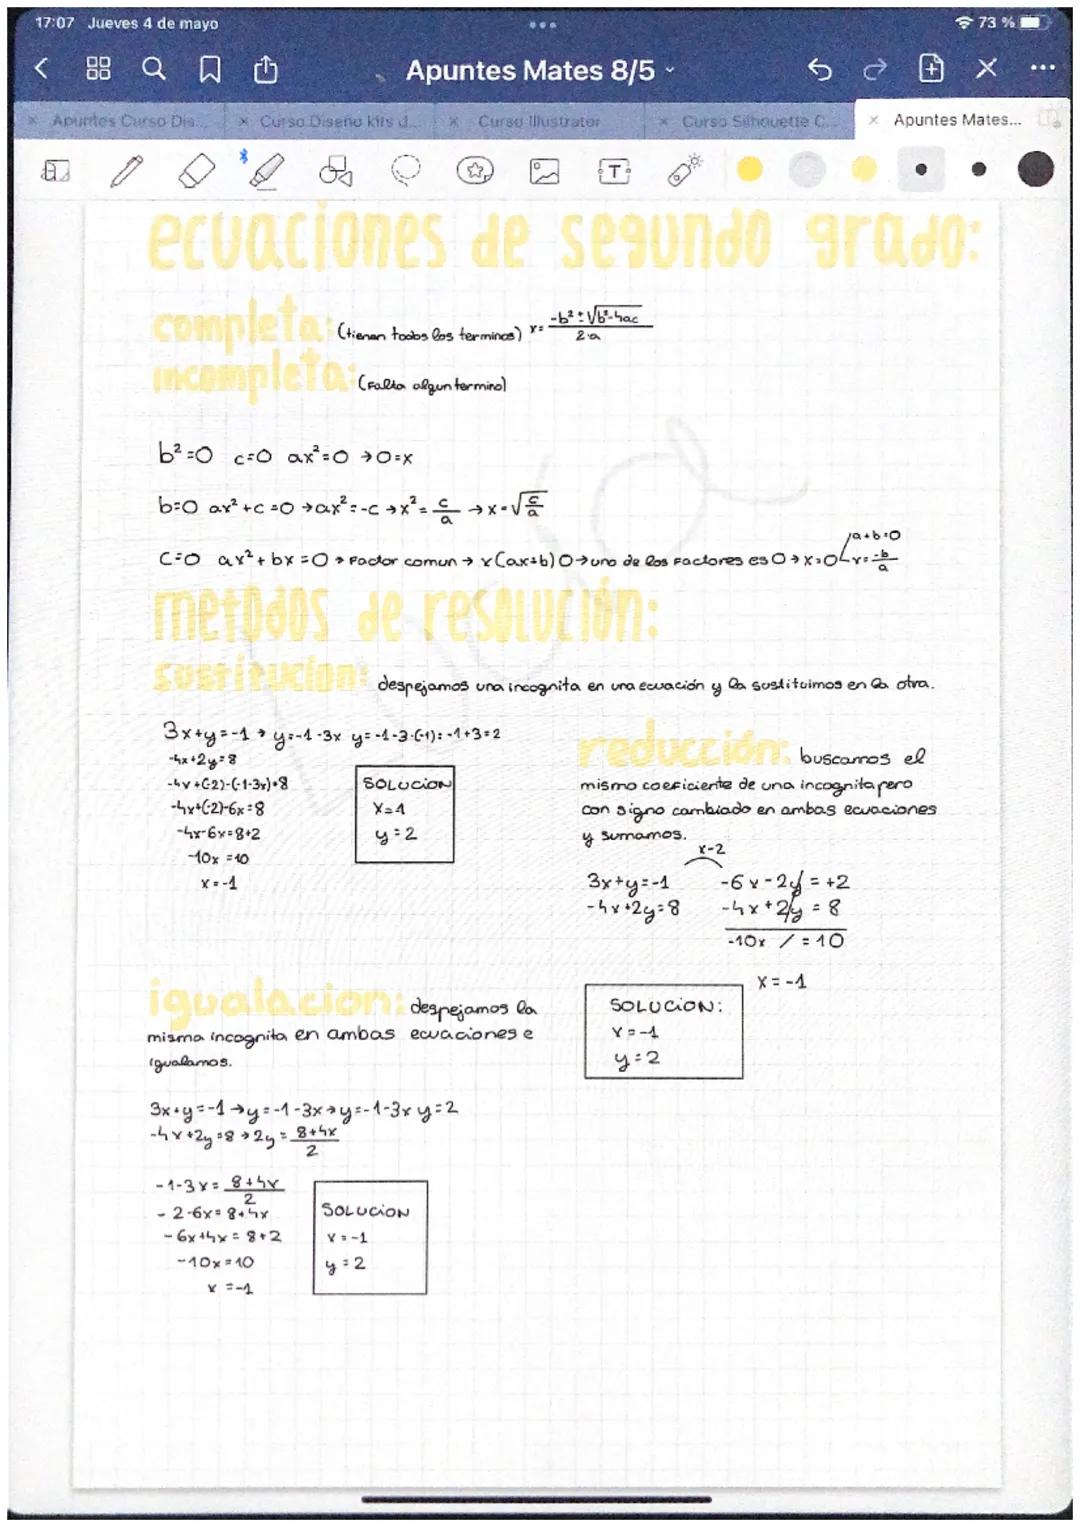 17:07 Jueves 4 de mayo
73 %
Apuntes Mates 8/5
Apuntes Curso Dis...
Curso Diseño kits d...
Curso Illustrator
Curso Silhouette C...
Apuntes Mates...
ecuaciones de segundo grado:
completa: (tienen todos los terminos) x = -b²±√b²-4ac / 2·a
incompleta: (Falta algun termino)
b²=0 c=0 ax²=0 →0=x
b=0 ax²+c=0 →ax²=-c →x²= c/a →x=√c/a
C=0 ax²+bx=0 → Factor comun → x(ax+b)0→uno de los Factores es 0→x=0 a+b=0 x=-b/a
metodos de resolución:
sustitucion: despejamos una incognita en una ecuación y la sustituimos en la otra.
3x+y=-1 → y=-1-3x y=-1-3·(-1)=-1+3=2
-4x+2y=8
-4x+(-2)-(-1-3x)=8
-4x+(-2)-6x=8
-4x-6x=8+2
-10x=10
x=-1
SOLUCION
X=1
y=2
reducción: buscamos el
mismo coeficiente de una incognita pero
con signo cambiado en ambas ecuaciones
y sumamos.
x-2
3x+y=-1 -6x-2y=+2
-4x+2y=8 -4x+2y=8
-10x / =10
x=-1
SOLUCION:
x=-1
y=2
igualacion: despejamos la
misma incognita en ambas ecuaciones e
igualamos.
3x+y=-1→y=-1-3x→y=-1-3x y=2
-4x+2y=8→2y= 8+4x / 2
-1-3x= 8+4x / 2
-2-6x=8+4x
-6x+4x=8+2
-10x=10
x=-1
SOLUCION
x=-1
y=2